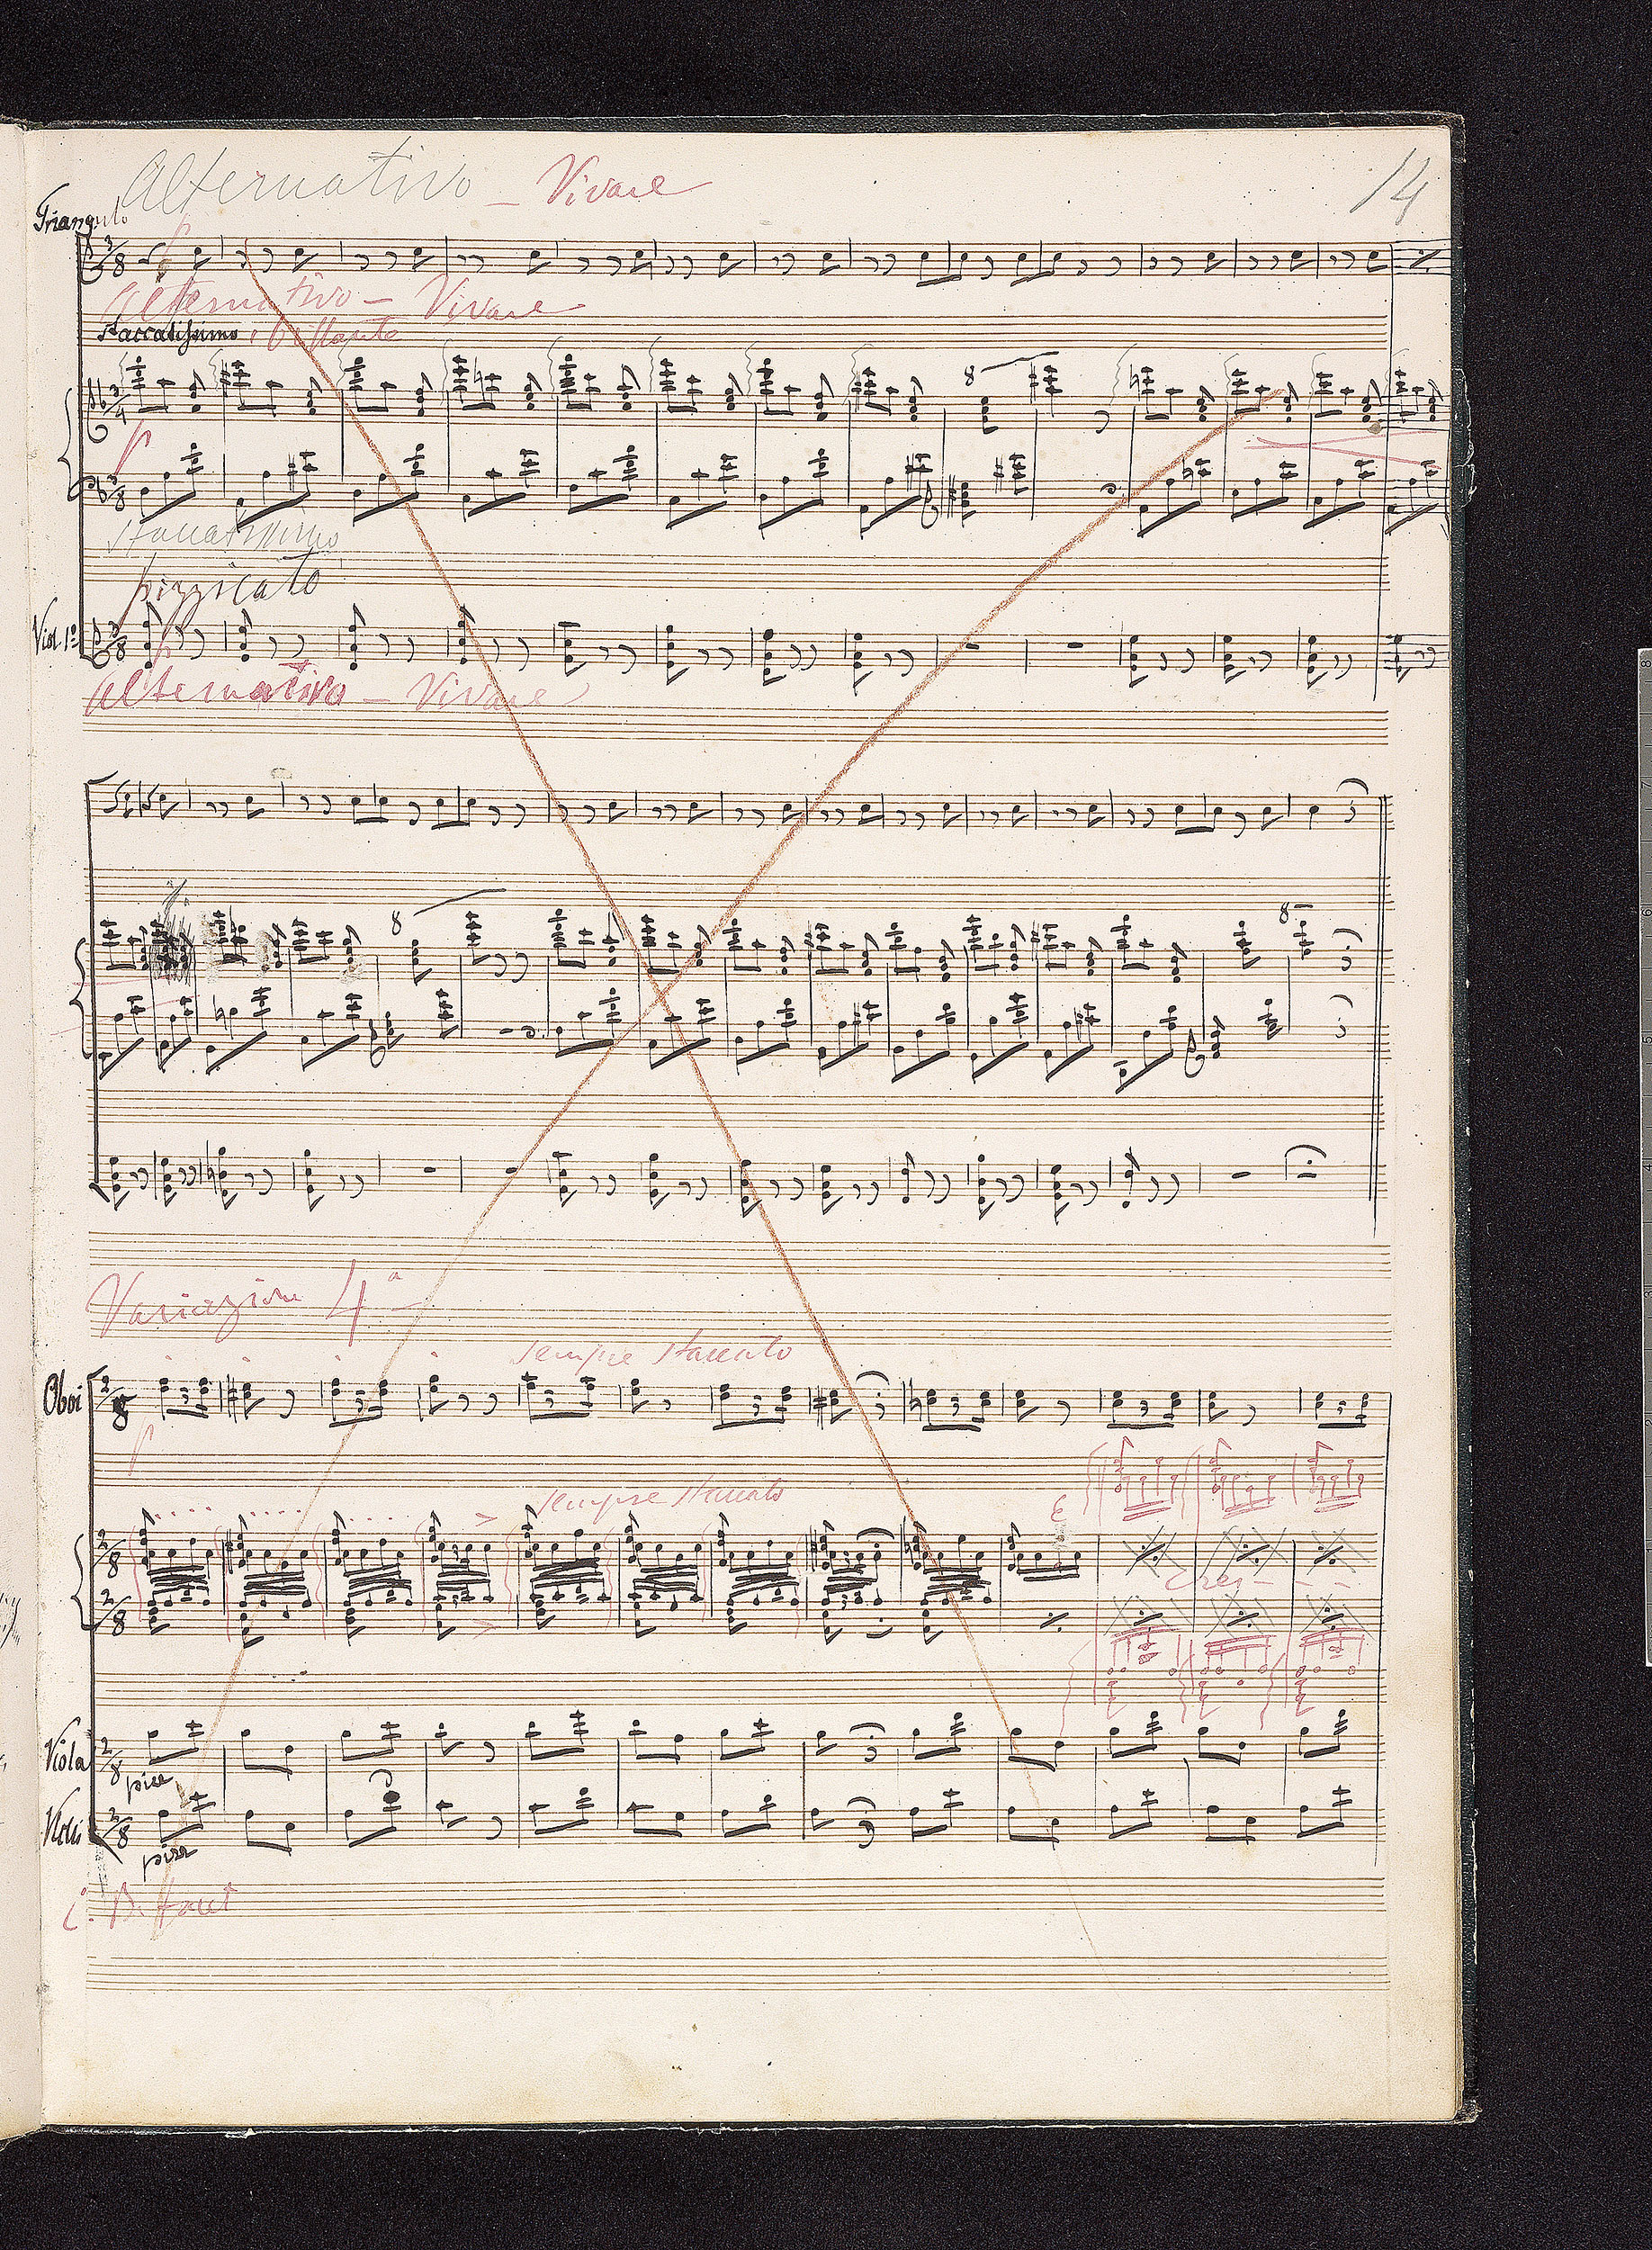 Alternativo – Vivace
14
Triangulo
Alternativo – Vivace
staccatissimo
8
staccatissimo
pizzicato
Viol. 1º
Alternativo – Vivace
8
8
Variazione 4ª
sempre staccato
Oboi
sempre staccato
Cres - - -
Viola
pizz
Vlclli
pizz